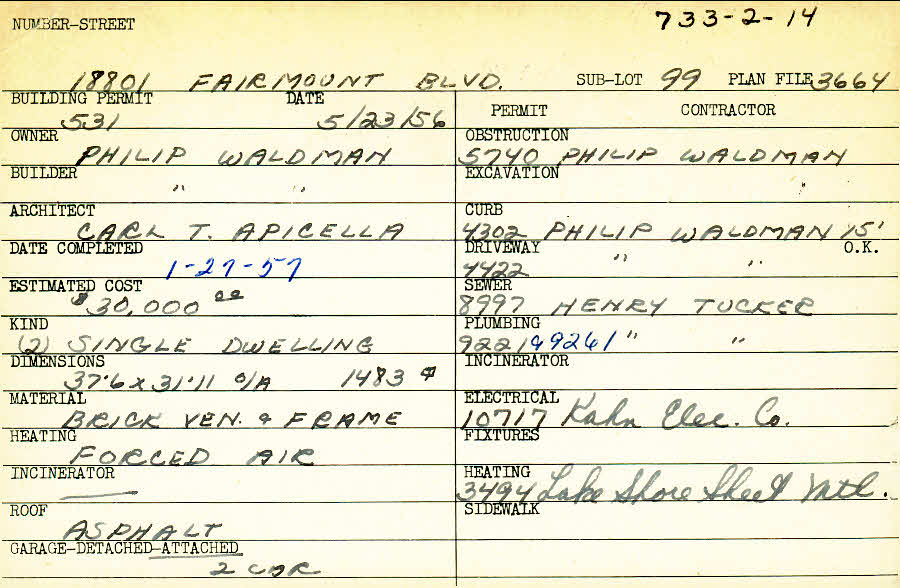 733-2-14
NUMBER-STREET
18801 FAIRMOUNT BLVD. SUB-LOT 99 PLAN FILE 3664
BUILDING PERMIT DATE
531 5/23/56
OWNER
PHILIP WALDMAN
BUILDER
" "
ARCHITECT
CARL T. APICELLA
DATE COMPLETED
1-27-57
ESTIMATED COST
$30,000 00
KIND
(2) SINGLE DWELLING
DIMENSIONS
37'6 x 31'11 O/A 1483
MATERIAL
BRICK VEN. & FRAME
HEATING
FORCED AIR
INCINERATOR
—
ROOF
ASPHALT
GARAGE-DETACHED-ATTACHED
2 CAR
PERMIT CONTRACTOR
OBSTRUCTION
5740 PHILIP WALDMAN
EXCAVATION
"
CURB
4302 PHILIP WALDMAN 15'
DRIVEWAY " " O.K.
4422
SEWER
8997 HENRY TUCKER
PLUMBING
9221 & 9261 " "
INCINERATOR
ELECTRICAL
10717 Kahn Elec. Co.
FIXTURES
HEATING
3494 Lake Shore Sheet Mtl.
SIDEWALK